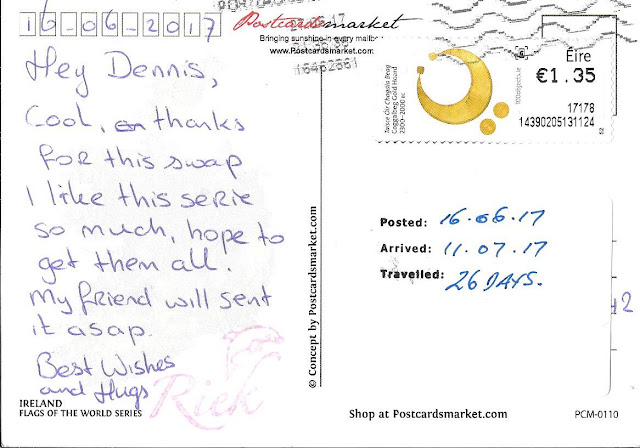 16-06-2017
Postcardsmarket
Bringing sunshine in every mailbox
www.Postcardsmarket.com
16462861
Hey Dennis,
Cool, thanks
for this swap
I like this serie
so much, hope to
get them all.
My friend will sent
it asap.
Best Wishes
and Hugs
Riek
IRELAND
FLAGS OF THE WORLD SERIES
© Concept by Postcardsmarket.com
Éire
€1.35
17178
14390205131124
52
Taisce Óir Chogala Beag
Coggalbeg Gold Hoard
2300-2000 BC
100objects.ie
Posted: 16.06.17
Arrived: 11.07.17
Travelled: 26 DAYS.
Shop at Postcardsmarket.com
PCM-0110